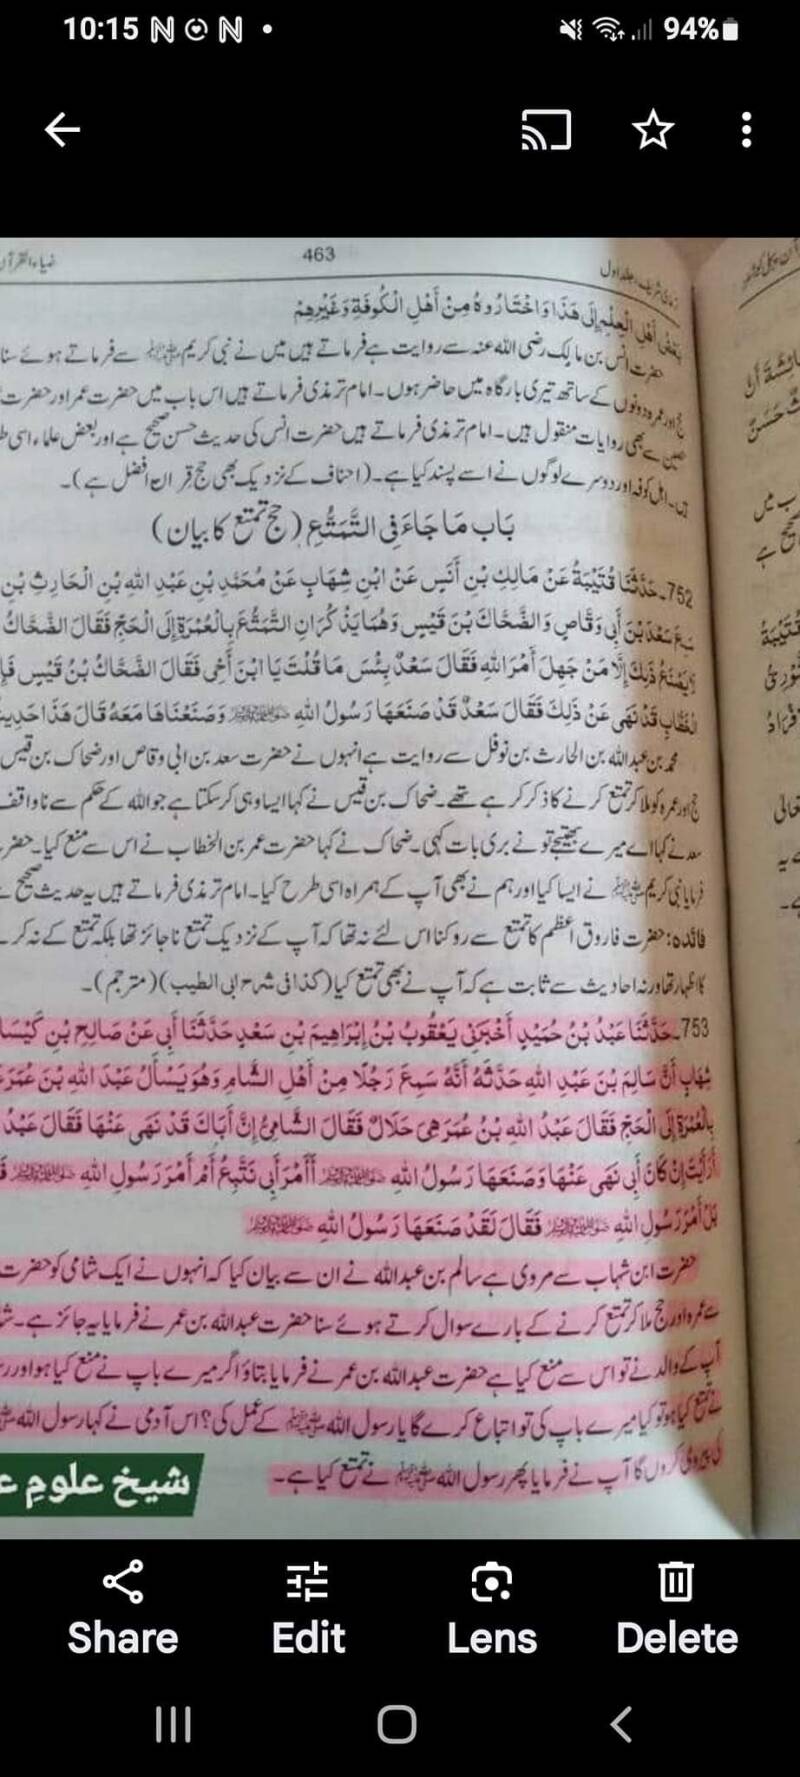 10:15
94%
463
ضیاء القرآن
بَعْضُ أَهْلِ الْعِلْمِ إِلَى هَذَا وَاخْتَارُوهُ مِنْ أَهْلِ الْكُوفَةِ وَغَيْرِهِمْ
حضرت انس بن مالک رضی اللہ عنہ سے روایت ہے فرماتے ہیں میں نے نبی کریم ﷺ سے فرماتے ہوئے سنا
حج اور عمرہ دونوں کے ساتھ تیری بارگاہ میں حاضر ہوں۔ امام ترمذی فرماتے ہیں اس باب میں حضرت عمر اور حضرت
حصین سے بھی روایات منقول ہیں۔ امام ترمذی فرماتے ہیں حضرت انس کی حدیث حسن صحیح ہے اور بعض علماء اسی
ہیں۔ اہل کوفہ اور دوسرے لوگوں نے اسے پسند کیا ہے۔ (احناف کے نزدیک بھی حج قران افضل ہے)۔
بَاب مَا جَاءَ فِي التَّمَتُّعِ (حج تمتع کا بیان)
752۔ حَدَّثَنَا قُتَيْبَةُ عَنْ مَالِكِ بْنِ أَنَسٍ عَنْ ابْنِ شِهَابٍ عَنْ مُحَمَّدِ بْنِ عَبْدِ اللهِ بْنِ الْحَارِثِ بْنِ
سَمِعَ سَعْدَ بْنَ أَبِي وَقَّاصٍ وَالضَّحَّاكَ بْنَ قَيْسٍ وَهُمَا يَذْكُرَانِ التَّمَتُّعَ بِالْعُمْرَةِ إِلَى الْحَجِّ فَقَالَ الضَّحَّاكُ
لَا يَصْنَعُ ذَلِكَ إِلَّا مَنْ جَهِلَ أَمْرَ اللهِ فَقَالَ سَعْدٌ بِئْسَ مَا قُلْتَ يَا ابْنَ أَخِي فَقَالَ الضَّحَّاكُ بْنُ قَيْسٍ
الْخَطَّابِ قَدْ نَهَى عَنْ ذَلِكَ فَقَالَ سَعْدٌ قَدْ صَنَعَهَا رَسُولُ اللهِ ﷺ وَصَنَعْنَاهَا مَعَهُ قَالَ هَذَا حَدِيثٌ
محمد بن عبد اللہ بن الحارث بن نوفل سے روایت ہے انہوں نے حضرت سعد بن ابی وقاص اور ضحاک بن قیس
حج اور عمرہ کو ملا کر تمتع کرنے کا ذکر کر رہے تھے۔ ضحاک بن قیس نے کہا ایسا وہی کر سکتا ہے جو اللہ کے حکم سے ناواقف
سعد نے کہا اے میرے بھتیجے تو نے بری بات کہی۔ ضحاک نے کہا حضرت عمر بن الخطاب نے اس سے منع کیا۔
فرمایا نبی کریم ﷺ نے ایسا کیا اور ہم نے بھی آپ کے ہمراہ اسی طرح کیا۔ امام ترمذی فرماتے ہیں یہ حدیث صحیح
فائدہ: حضرت فاروق اعظم کا تمتع سے روکنا اس لئے نہ تھا کہ آپ کے نزدیک تمتع ناجائز تھا بلکہ تمتع کے نہ کر
کا اظہار تھا ورنہ احادیث سے ثابت ہے کہ آپ نے بھی تمتع کیا (کذا فی شرح ابی الطیب) (مترجم)۔
753۔ حَدَّثَنَا عَبْدُ بْنُ حُمَيْدٍ أَخْبَرَنِي يَعْقُوبُ بْنُ إِبْرَاهِيمَ بْنِ سَعْدٍ حَدَّثَنَا أَبِي عَنْ صَالِحِ بْنِ كَيْسَا
شِهَابٍ أَنَّ سَالِمَ بْنَ عَبْدِ اللهِ حَدَّثَهُ أَنَّهُ سَمِعَ رَجُلًا مِنْ أَهْلِ الشَّامِ وَهُوَ يَسْأَلُ عَبْدَ اللهِ بْنَ عُمَرَ
بِالْعُمْرَةِ إِلَى الْحَجِّ فَقَالَ عَبْدُ اللهِ بْنُ عُمَرَ هِيَ حَلَالٌ فَقَالَ الشَّامِيُّ إِنَّ أَبَاكَ قَدْ نَهَى عَنْهَا فَقَالَ عَبْدُ
أَرَأَيْتَ إِنْ كَانَ أَبِي نَهَى عَنْهَا وَصَنَعَهَا رَسُولُ اللهِ ﷺ أَأَمْرَ أَبِي نَتَّبِعُ أَمْ أَمْرَ رَسُولِ اللهِ ﷺ
بَلْ أَمْرَ رَسُولِ اللهِ ﷺ فَقَالَ لَقَدْ صَنَعَهَا رَسُولُ اللهِ ﷺ
حضرت ابن شہاب سے مروی ہے سالم بن عبد اللہ نے ان سے بیان کیا کہ انہوں نے ایک شامی کو حضرت
سے عمرہ اور حج ملا کر تمتع کرنے کے بارے سوال کرتے ہوئے سنا حضرت عبد اللہ بن عمر نے فرمایا یہ جائز ہے۔
آپ کے والد نے تو اس سے منع کیا ہے حضرت عبد اللہ بن عمر نے فرمایا بتاؤ اگر میرے باپ نے منع کیا ہو اور
نے تمتع کیا ہو تو کیا میرے باپ کی تو اتباع کرے گا یا رسول اللہ ﷺ کے عمل کی؟ اس آدمی نے کہا رسول اللہ
کی پیروی کروں گا آپ نے فرمایا پھر رسول اللہ ﷺ نے تمتع کیا ہے۔
شیخ علوم
Share
Edit
Lens
Delete